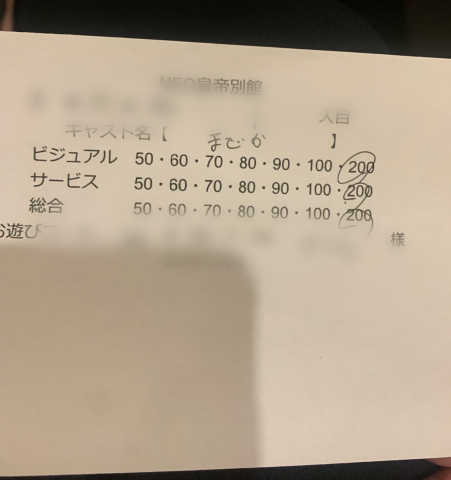 NEO皇帝別館
人目
キャスト名【 まどか 】
ビジュアル 50・60・70・80・90・100・200
サービス 50・60・70・80・90・100・200
総合 50・60・70・80・90・100・200
お遊び
様